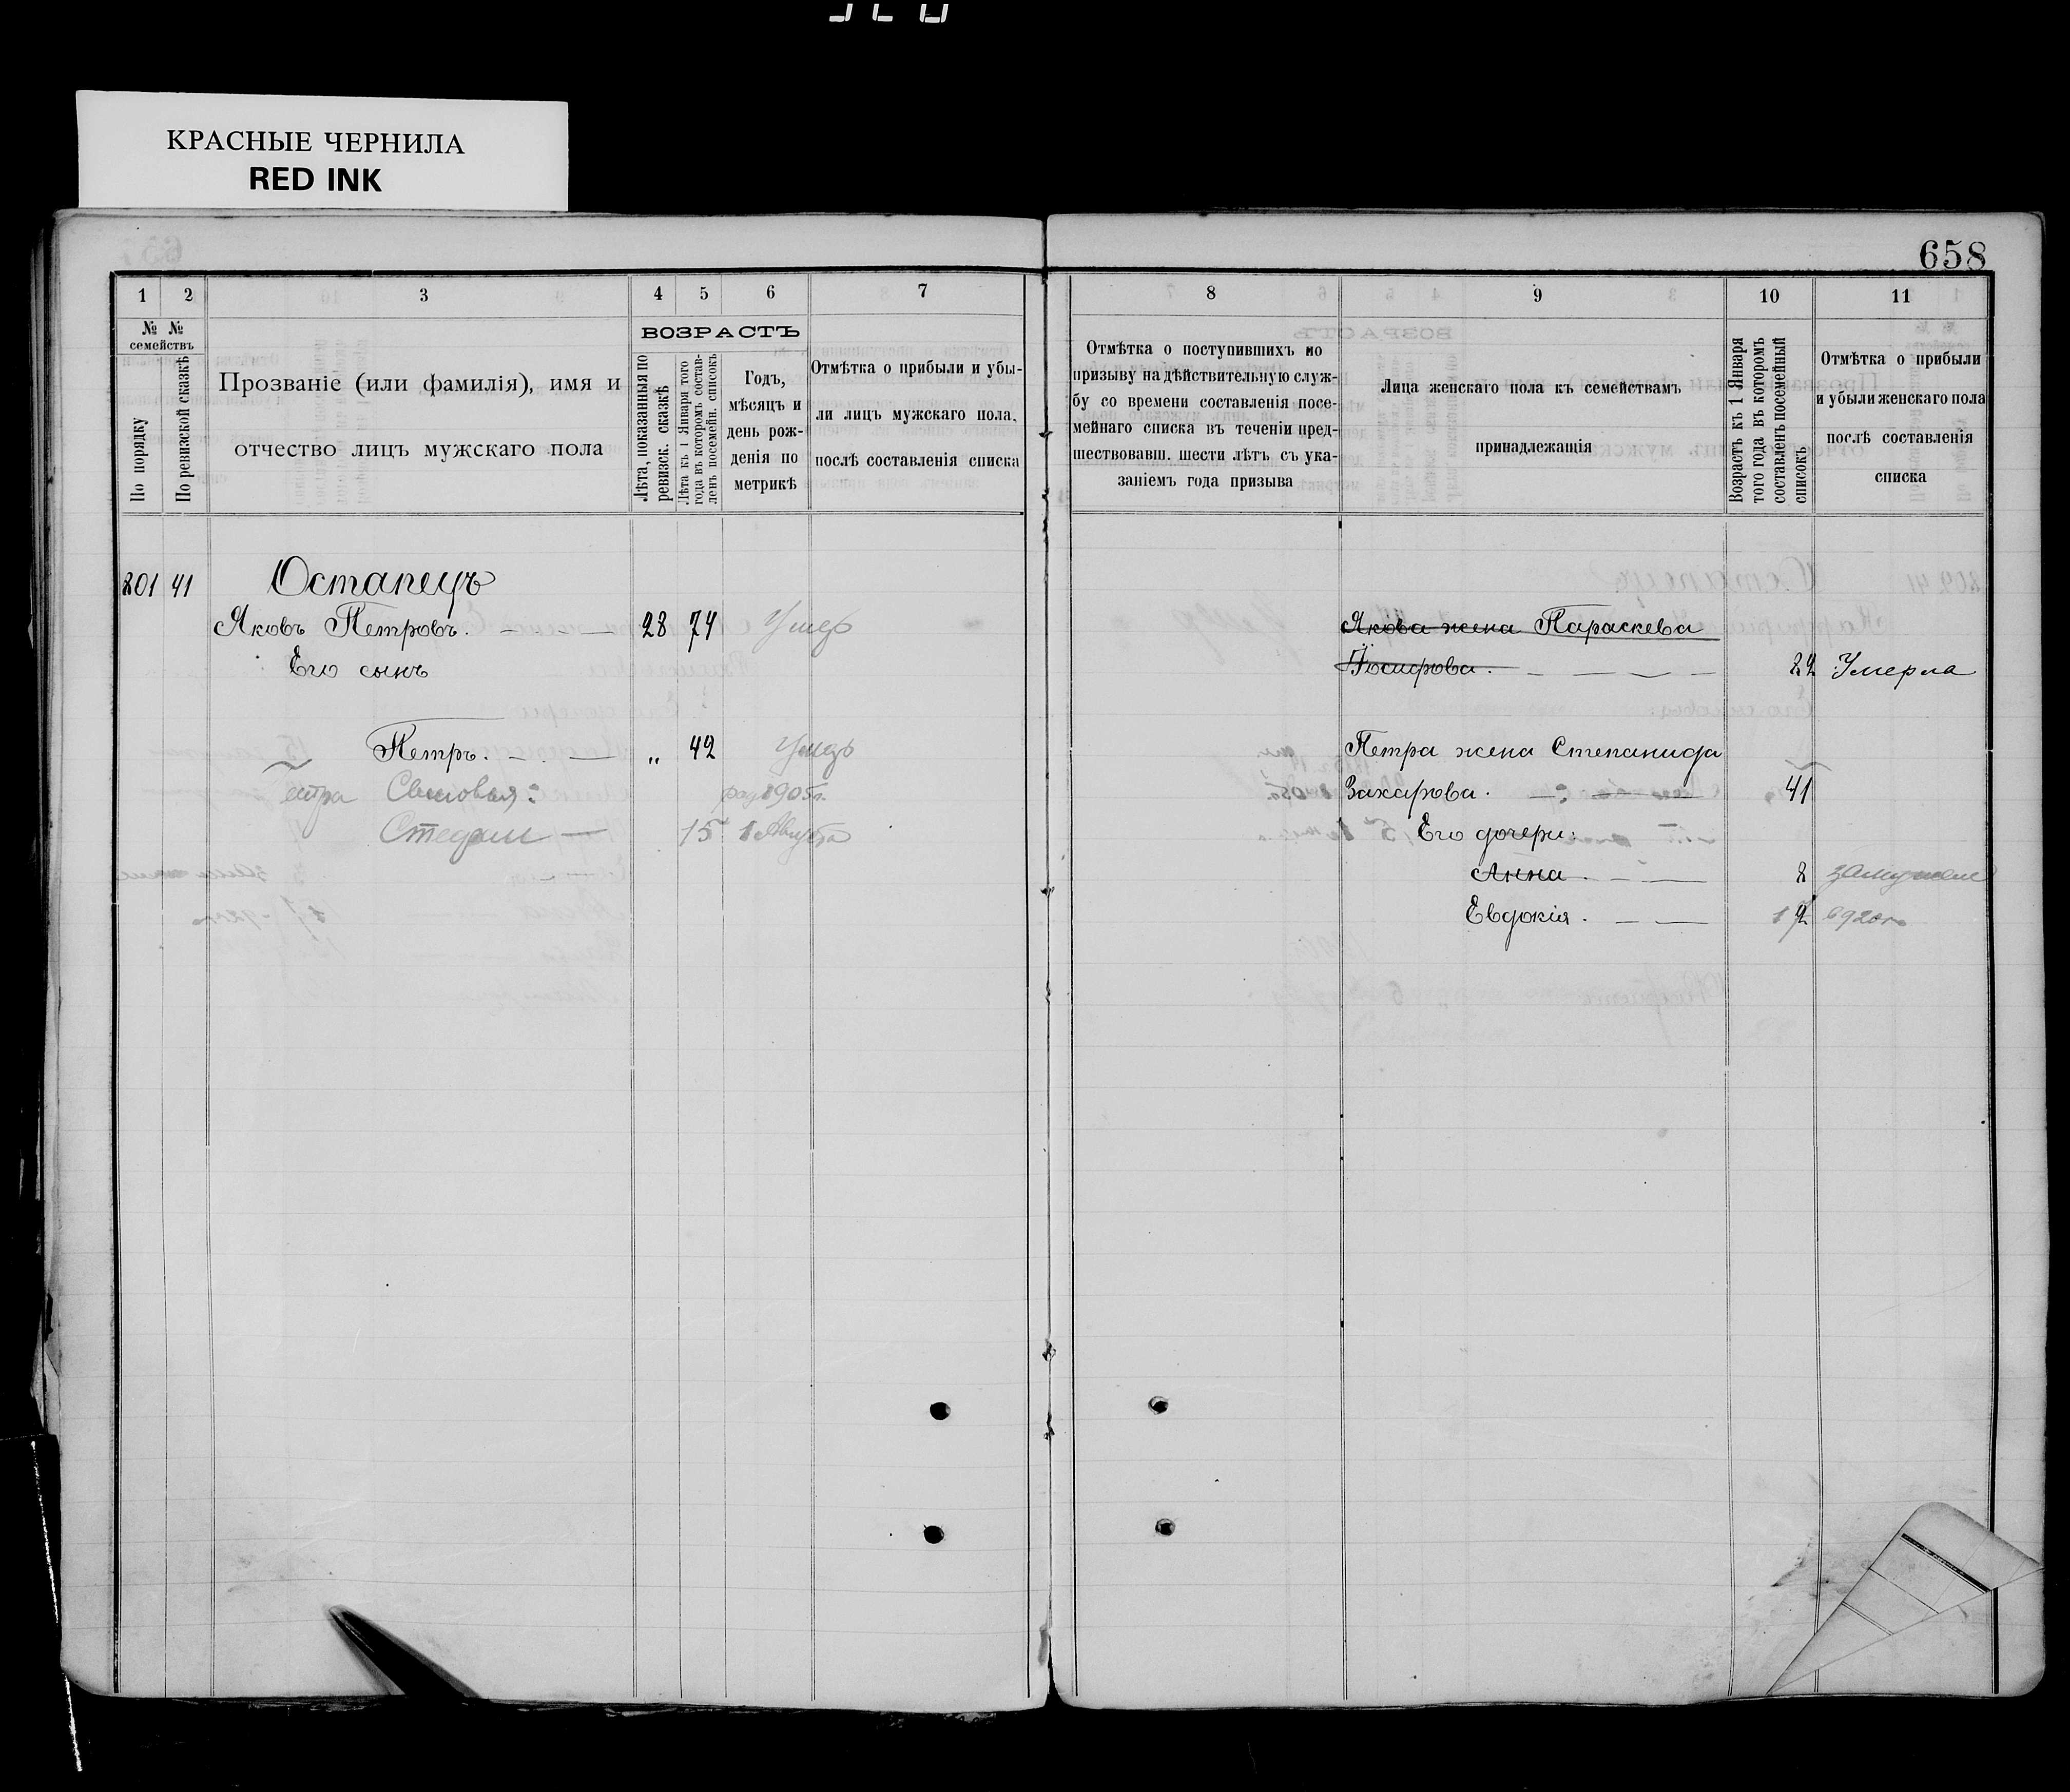 КРАСНЫЕ ЧЕРНИЛА
RED INK
658
1 2 3 4 5 6 7
№ № семействъ
По порядку
По ревизской сказкѣ
Прозваніе (или фамилія), имя и
отчество лицъ мужскаго пола
ВОЗРАСТЪ
Лѣта, показанныя по
ревизск. сказкѣ
Лѣта къ 1 Января того
года въ которомъ состав-
ленъ посемейн. списокъ
Годъ,
мѣсяцъ и
день рож-
денія по
метрикѣ
Отмѣтка о прибыли и убы-
ли лицъ мужскаго пола,
послѣ составленія списка
8 9 10 11
Отмѣтка о поступившихъ по
призыву на дѣйствительную служ-
бу со времени составленія посе-
мейнаго списка въ теченіи пред-
шествовавш. шести лѣтъ съ ука-
заніемъ года призыва
Лица женскаго пола къ семействамъ
принадлежащія
Возрастъ къ 1 Января
того года въ которомъ
составленъ посемейный
списокъ
Отмѣтка о прибыли
и убыли женскаго пола
послѣ составленія
списка
801 41 Остапецъ
Яковъ Петровъ. 28 74 Умеръ
Его сынъ
Петръ. „ 42 Умеръ
Петра Сыновья:
1905г.
Стефан — 15 1 Августа
Якова жена Параскева
Іосифова. Умерла
Петра жена Степанида
Захарова. 41
Его дочери:
Анна. 8 замужем
Евдокія.